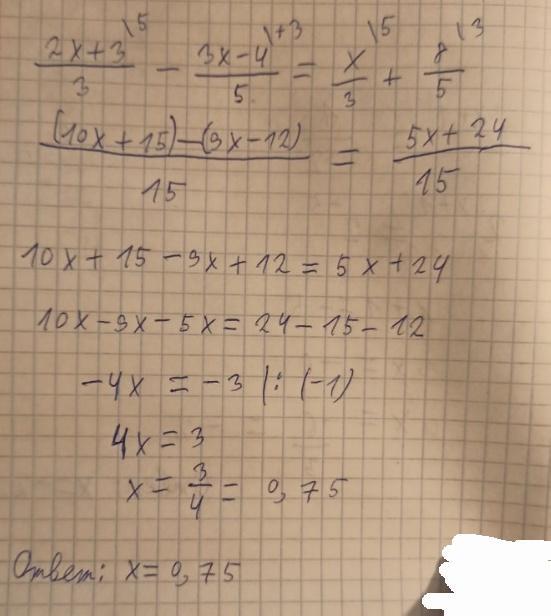 (2x+3)/3 \5 − (3x−4)/5 \+3 = x/3 \5 + 8/5 \3
((10x+15)−(9x−12))/15 = (5x+24)/15
10x+15−9x+12=5x+24
10x−9x−5x=24−15−12
−4x = −3 |:(−1)
4x=3
x=3/4= 0,75
Ответ: x=0,75